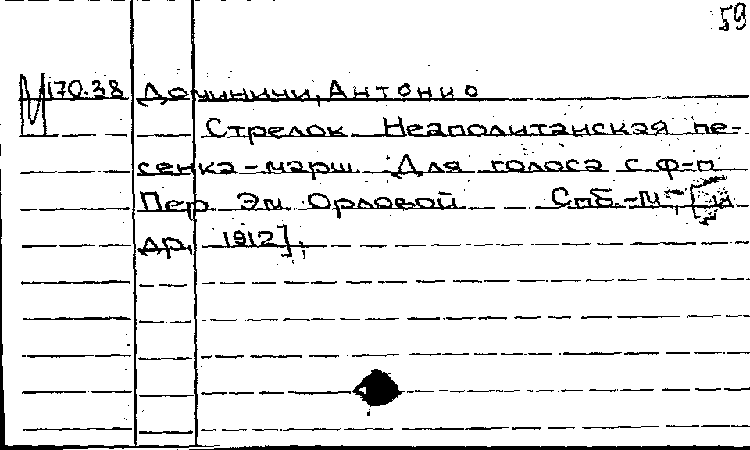 59
М 170.38 Доминичи, Антонио
Стрелок. Неаполитанская пе-
сенка-марш. Для голоса с ф-п
Пер. Эм. Орловой Спб.-М., [и
др., 1912];